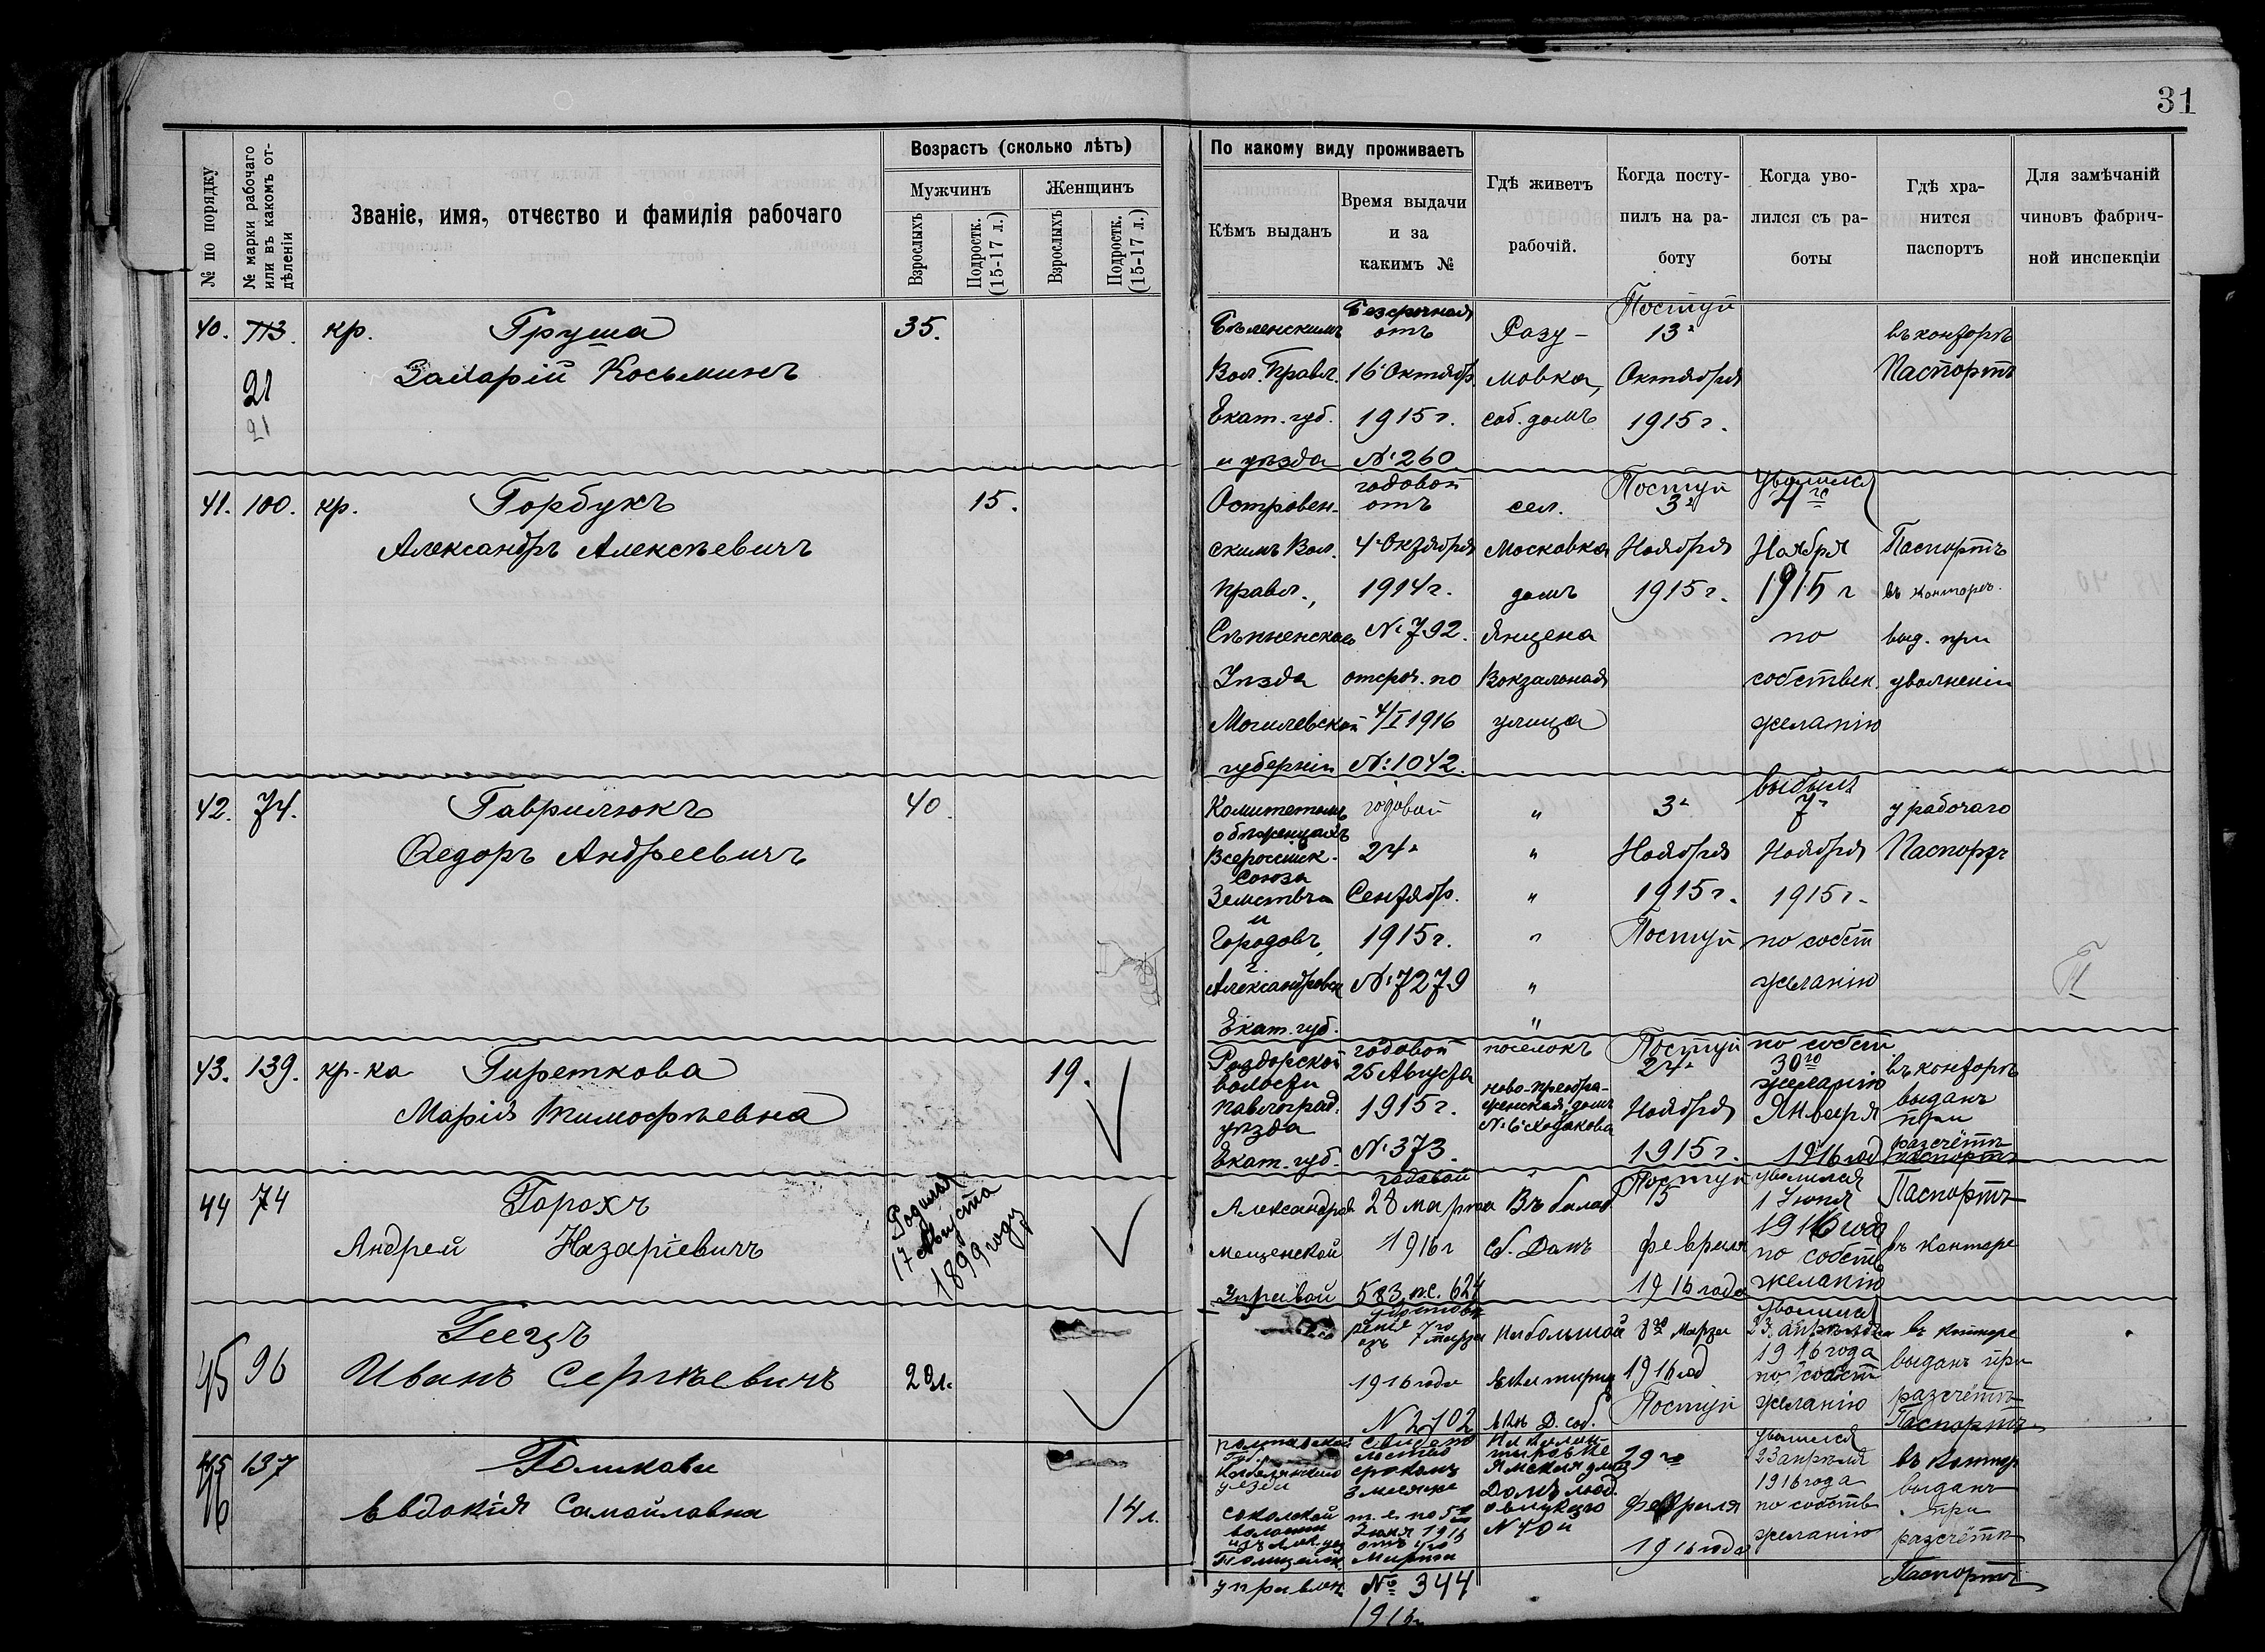 31
№ по порядку
№ марки рабочаго или въ какомъ от-дѣленіи
Званіе, имя, отчество и фамилія рабочаго
Возрастъ (сколько лѣтъ)
Мужчинъ
Женщинъ
Взрослыхъ
Подростк. (15-17 л.)
Взрослыхъ
Подростк. (15-17 л.)
По какому виду проживаетъ
Кѣмъ выданъ
Время выдачи
и за
какимъ №
Гдѣ живетъ
рабочій.
Когда посту-
пилъ на ра-
боту
Когда уво-
лился съ ра-
боты
Гдѣ хра-
нится
паспортъ
Для замѣчаній
чиновъ фабрич-
ной инспекціи
40. 113. кр. Груша 35.
21 Захарій Косьминъ
21
Бѣленскимъ
Вол. Правл.
Екат. губ.
и уѣзда
Безсрочная
отъ
16 Октябр.
1915 г.
№ 260
Разу-
мовка,
соб. домъ
Поступ
13
Октября
1915 г.
въ конторѣ
Паспортъ
41. 100. кр. Горбукъ 15.
Александръ Алексѣевичъ
Островен-
скимъ Вол.
Правл.,
Сѣнненскаго
Уѣзда
Могилевской
губерніи
годовой
отъ
4 Октября
1914 г.
№ 792.
отсроч. по
4/I 1916
№ 1042.
сел.
Московка
домъ
Янцена
Вокзальная
улица
Поступ
3
Ноября
1915 г.
Уволился
4го
Ноября
1915 г
по
собствен.
желанію
Паспортъ
въ конторѣ.
выд. при
увольненіи
42. 74. Гаврилюкъ 40.
Федоръ Андреевичъ
Комитетомъ
о бѣженцахъ
Всероссійск.
Союза
Земствъ
и
Городовъ,
г.
Александровск
Екат. губ.
годовой
24
Сентябр.
1915 г.
№ 7279
"
"
"
"
"
"
3
Ноября
1915 г.
Поступ
выбылъ
7
Ноября
1915 г.
по собст
желанію
у рабочаго
Паспортъ
П
43. 139. кр-ка Гиреткова 19.
Марія Тимофѣевна
Роздорской
волости
Павлоград.
уѣзда
Екат. губ.
годовой
25 Августа
1915 г.
№ 373.
поселокъ
ново-преобра-
женская, домъ
№ 6 Ходакова
Поступ
24
Ноября
1915 г.
по собст
30го
желанію
Января
1916 год
въ конторѣ
выданъ
при
разсчётѣ
паспортъ
44 74 Горохъ
Андрей Назаріевичъ
Родился
17 Августа
1899 году
Александров
Мещенской
Управой
годовой
28 марта
1916 г
583, 624
Соб. Домъ
Поступ
15
февраля
1916 года
уволился
1 Іюня
1916 года
по собств
желанію
Паспортъ
въ конторе
45 96 Геецъ
Иванъ Сергѣевичъ 29 л.
1916 года
№ 2702
На большой
8го Марта
1916 год
Поступ
уволился
23 апрѣля
1916 года
по собст
желанію
въ конторе
выданъ при
разсчётѣ
Паспортъ
46 137 Голикова
Евдокія Самойловна 14 л.
Полтавской
губ.
Кобелякскаго
уезда
Соколской
волости
Полицейск.
управлен.
срокомъ
3 месяца
т. е. по 5го
Іюня 1916
Марта
№ 344
1916 г
Ямская улиц
№ 40
29го
Февраля
1916 года
уволился
23 апрѣля
1916 года
по собств
желанію
въ контор
выданъ
при
разсчётѣ
Паспортъ